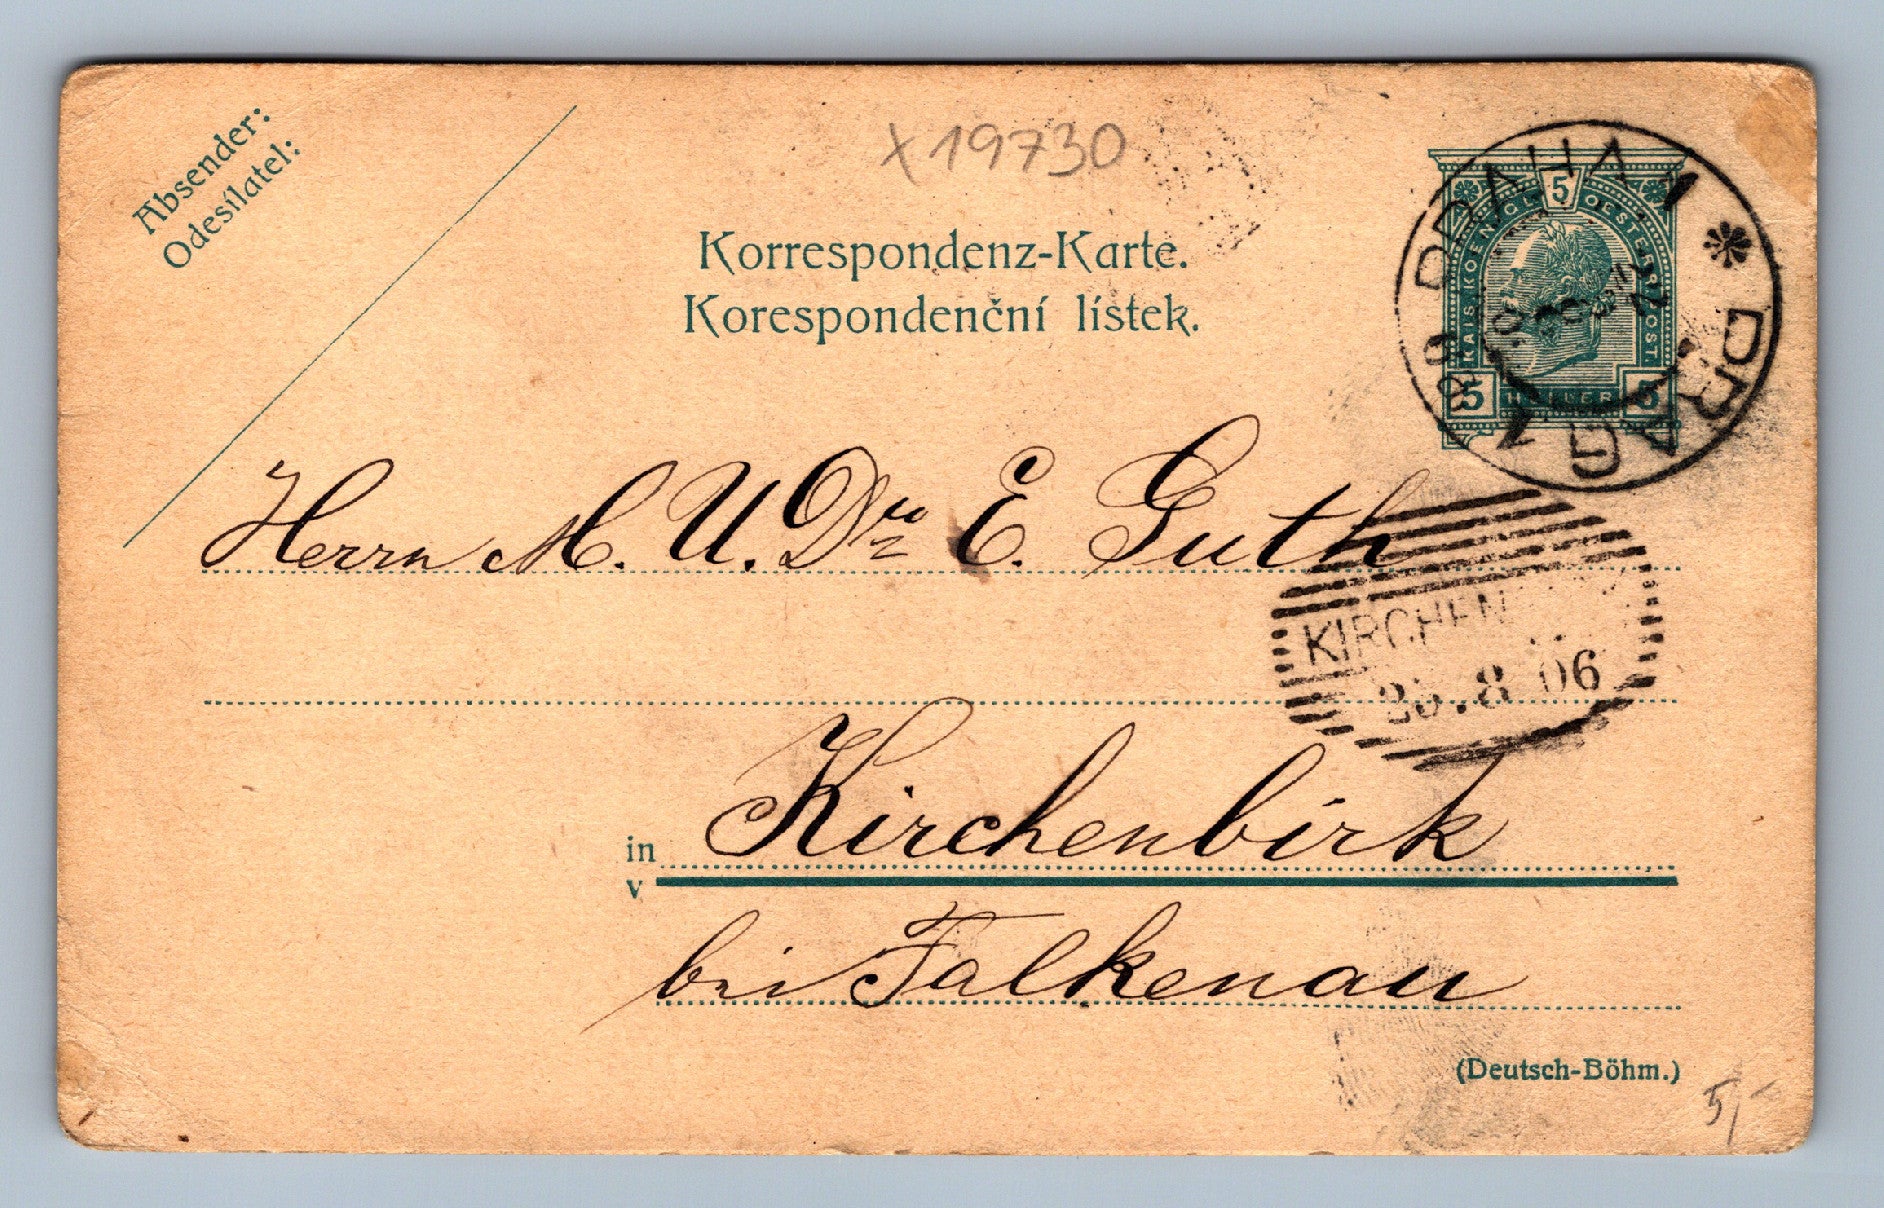 Absender:
Odesílatel:
x 19730
Korrespondenz-Karte.
Korespondenční lístek.
KAIS. KOENIGL. 5 OEST. POST.
5 HELLER 5
PRAHA 1 * PRAG 1
Herrn M. U. Dr. E. Guth
KIRCHEN
8 06
in Kirchenbirk
v
bei Falkenau
(Deutsch-Böhm.)
5,-